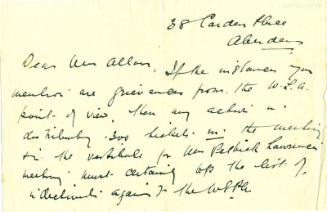 38 Carden Place
Aberdeen
Dear Mrs Allan. If the instances you
mention are grievances from the W.L.A.
point of view, then my action in
distributing 300 tickets in the meeting
& in the vestibule for Mrs Pethick Lawrence's
meeting must certainly top the list of
indictments against the WSPU